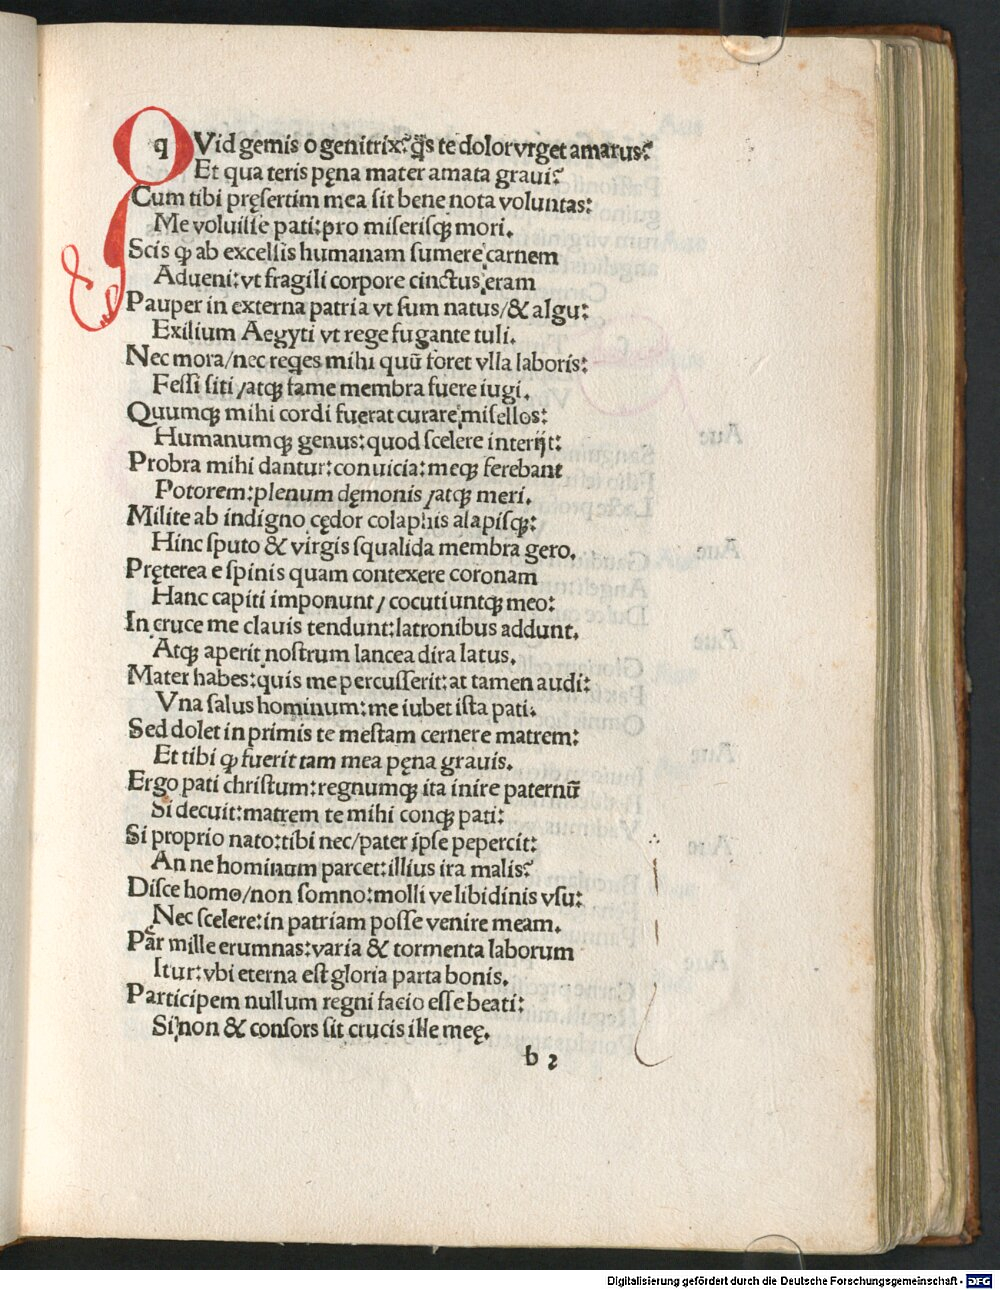 qVid gemis o genitrix? q̃s te dolor vrget amarus?
Et qua teris pęna mater amata graui?
Cum tibi pręsertim mea sit bene nota voluntas:
Me voluisse pati: pro miserisqꝫ mori.
Scis ꝙ ab excelsis humanam sumere carnem
Adueni: vt fragili corpore cinctus eram
Pauper in externa patria vt sum natus/ & algu:
Exilium Aegyti vt rege fugante tuli.
Nec mora/ nec reqes mihi quū foret vlla laboris:
Fessi siti /atqꝫ fame membra fuere iugi.
Quumqꝫ mihi cordi fuerat curare misellos:
Humanumqꝫ genus: quod scelere interijt:
Probra mihi dantur: conuicia: meqꝫ ferebant
Potorem: plenum dęmonis /atqꝫ meri.
Milite ab indigno cędor colaphis alapisqꝫ:
Hinc sputo & virgis squalida membra gero.
Pręterea e spinis quam contexere coronam
Hanc capiti imponunt/ cocutiuntqꝫ meo:
In cruce me clauis tendunt: latronibus addunt.
Atqꝫ aperit nostrum lancea dira latus.
Mater habes: quis me percusserit: at tamen audi:
Vna salus hominum: me iubet ista pati.
Sed dolet in primis te mestam cernere matrem:
Et tibi ꝙ fuerit tam mea pęna grauis.
Ergo pati christum: regnumqꝫ ita inire paternū
Si decuit: matrem te mihi conqꝫ pati:
Si proprio nato: tibi nec/ pater ipse pepercit:
An ne hominum parcet: illius ira malis?
Disce homo/ non somno: molli ve libidinis vsu:
Nec scelere: in patriam posse venire meam.
Pęr mille erumnas: varia & tormenta laborum
Itur: vbi eterna est gloria parta bonis.
Participem nullum regni facio esse beati:
Si non & consors sit crucis ille meę.
b 2
Digitalisierung gefördert durch die Deutsche Forschungsgemeinschaft - DFG